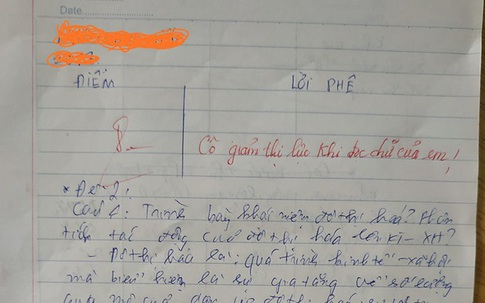 Date
ĐIỂM LỜI PHÊ
8.
Cô giảm thị lực khi đọc chữ của em!
* Đề 2:
Câu 1: Trình bày khái niệm đô thị hoá? Phân
tích tác động của đô thị hóa KT - XH?
- Đô thị hóa là: Quá trình kinh tế - xã hội
mà biểu hiện là sự gia tăng về số lượng